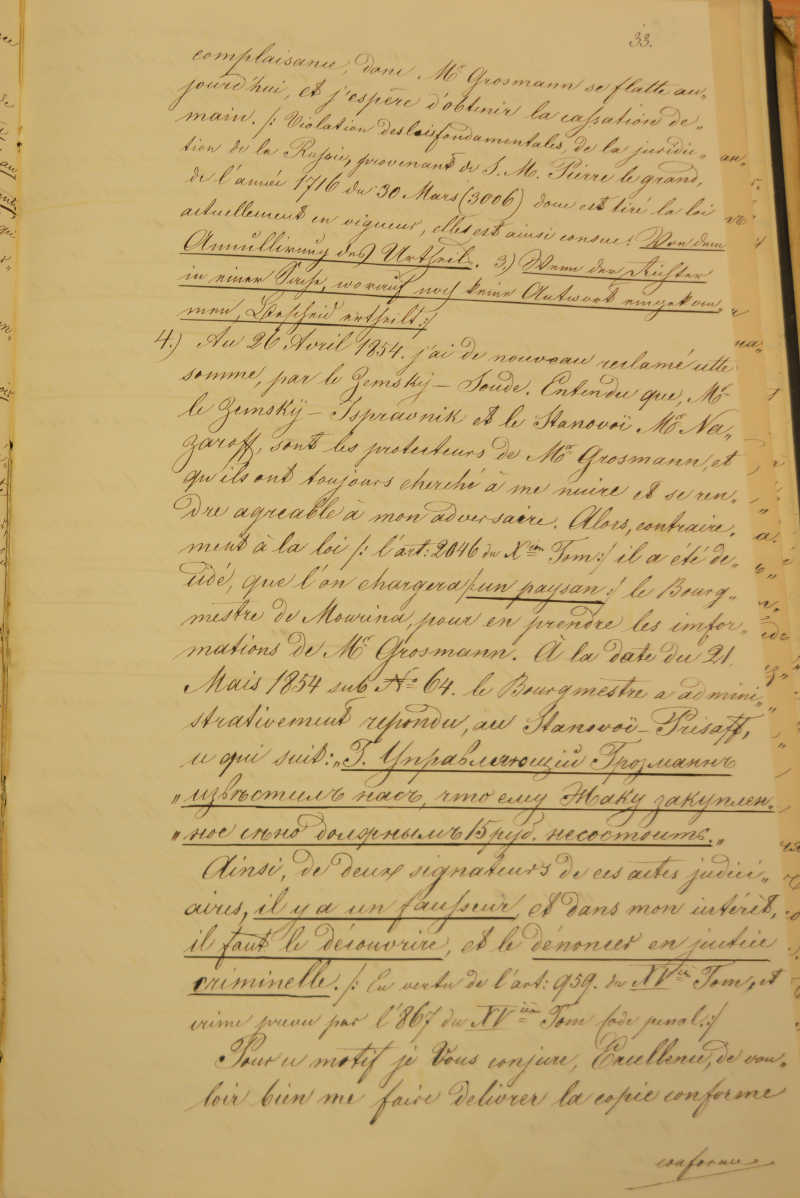 33.
complaisance, donc Mr Grosmann se flatte au„
jourd'hui, et j'espère d'obtenir la cassation de„
main. /: Violation des lois fondamentales, de la juridic„
tion de la Russie, provenant de S. M. Pierre le grand,
de l'année 1716 du 30 Mars (3006) dont est tiré la loi
actuellement en vigueur, elle est ainsi conçue: Von dem
Annullirung des Urtheils. 3) Wenn der Richter
in einer Sache, worauf noch keine Antwort eingekom„
men, Bescheid ertheilt :/
4.) Au 26 Avril 1854. j'ai de nouveau reclamé cette
somme, par le Zemskÿ – Soude. Entendu que, Mr
le Zemskÿ – Ispravnik et le Stanovoï Mr Na„
zaroff, sont les protecteurs de Mr Grosmann, et
qu'ils ont toujours cherché à me nuire et se ren„
dre agreable à mon adversaire. Alors, contraire„
ment à la loi /: l'art: 2046 du X Tom :/ il a été de„
cidé, que l'on chargera /: un paysan :/ le Bourg„
mestre de Mourina, pour en prendre les imfor„
mations de Mr Grosmann. À la date du 21
Mais 1854 sub No 64. le Bourgmestre a admini„
strativement repondu, au Stanovoï – Prisaff,
ce qui suit: „Г. Управляющий Грозманнъ
„извѣстилъ насъ, что ему Жаку закуплен„
„ное сѣно должнымъ 15 руб. несостоитъ.„
Ainsi, de deux signateurs de ces actes judici„
aires, il y a un fausseur, et dans mon intérèt,
il faut le découvrire, et le dénoncer en justice
criminelle. /: En vertu de l'art: 959. du XV Tom, et
crime prevu par l'867 du XV Tom Code penal :/
Pour ce motif je Vous conjure, Excellence, de vou„
loir bien me faire delivrer la copie conforme
conforme